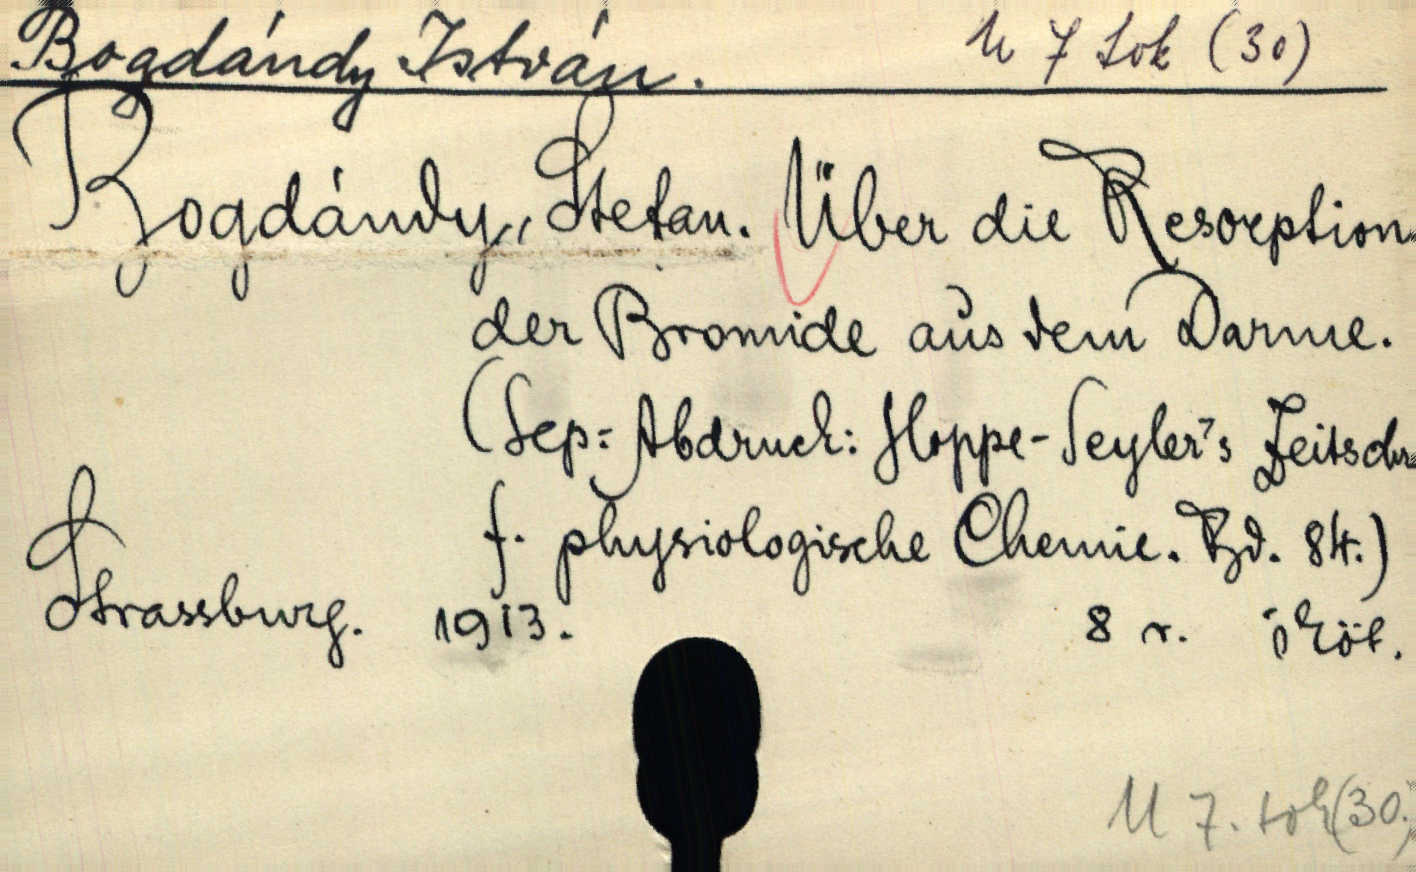 Bogdándy István. U 7 sok (30)
Bogdándy, Stefan. Über die Resorption
der Bromide aus dem Darme.
(Sep=Abdruck: Hoppe-Seyler's Zeitschr
f. physiologische Chemie. Bd. 84.)
Strassburg. 1913. 8 r. köt.
U 7. sok (30.)